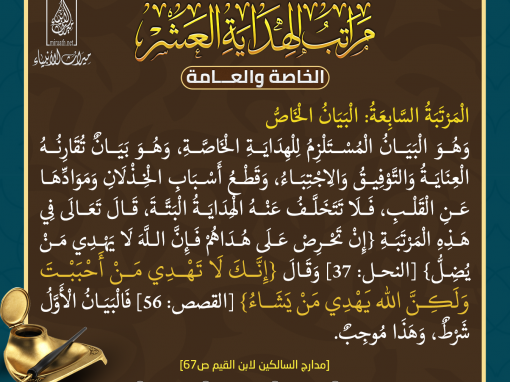 مَرَاتِبُ الهِدَايَةِ العَشْرِ
miraath.net
ميراث الأنبياء
الخاصة والعــامة
الْمَرْتَبَةُ السَّابِعَةُ: الْبَيَانُ الْخَاصُّ
وَهُوَ الْبَيَانُ الْمُسْتَلْزِمُ لِلْهِدَايَةِ الْخَاصَّةِ، وَهُوَ بَيَانٌ تُقَارِنُهُ
الْعِنَايَةُ وَالتَّوْفِيقُ وَالِاجْتِبَاءُ، وَقَطْعُ أَسْبَابِ الْخِذْلَانِ وَمَوَادِّهَا
عَنِ الْقَلْبِ، فَلَا تَتَخَلَّفُ عَنْهُ الْهِدَايَةُ الْبَتَّةَ، قَالَ تَعَالَى فِي
هَذِهِ الْمَرْتَبَةِ {إِنْ تَحْرِصْ عَلَى هُدَاهُمْ فَإِنَّ اللَّهَ لَا يَهْدِي مَنْ
يُضِلُّ} [النحل: 37] وَقَالَ {إِنَّكَ لَا تَهْدِي مَنْ أَحْبَبْتَ
وَلَكِنَّ اللَّهَ يَهْدِي مَنْ يَشَاءُ} [القصص: 56] فَالْبَيَانُ الْأَوَّلُ
شَرْطٌ، وَهَذَا مُوجِبٌ.
[مدارج السالكين لابن القيم ص67]